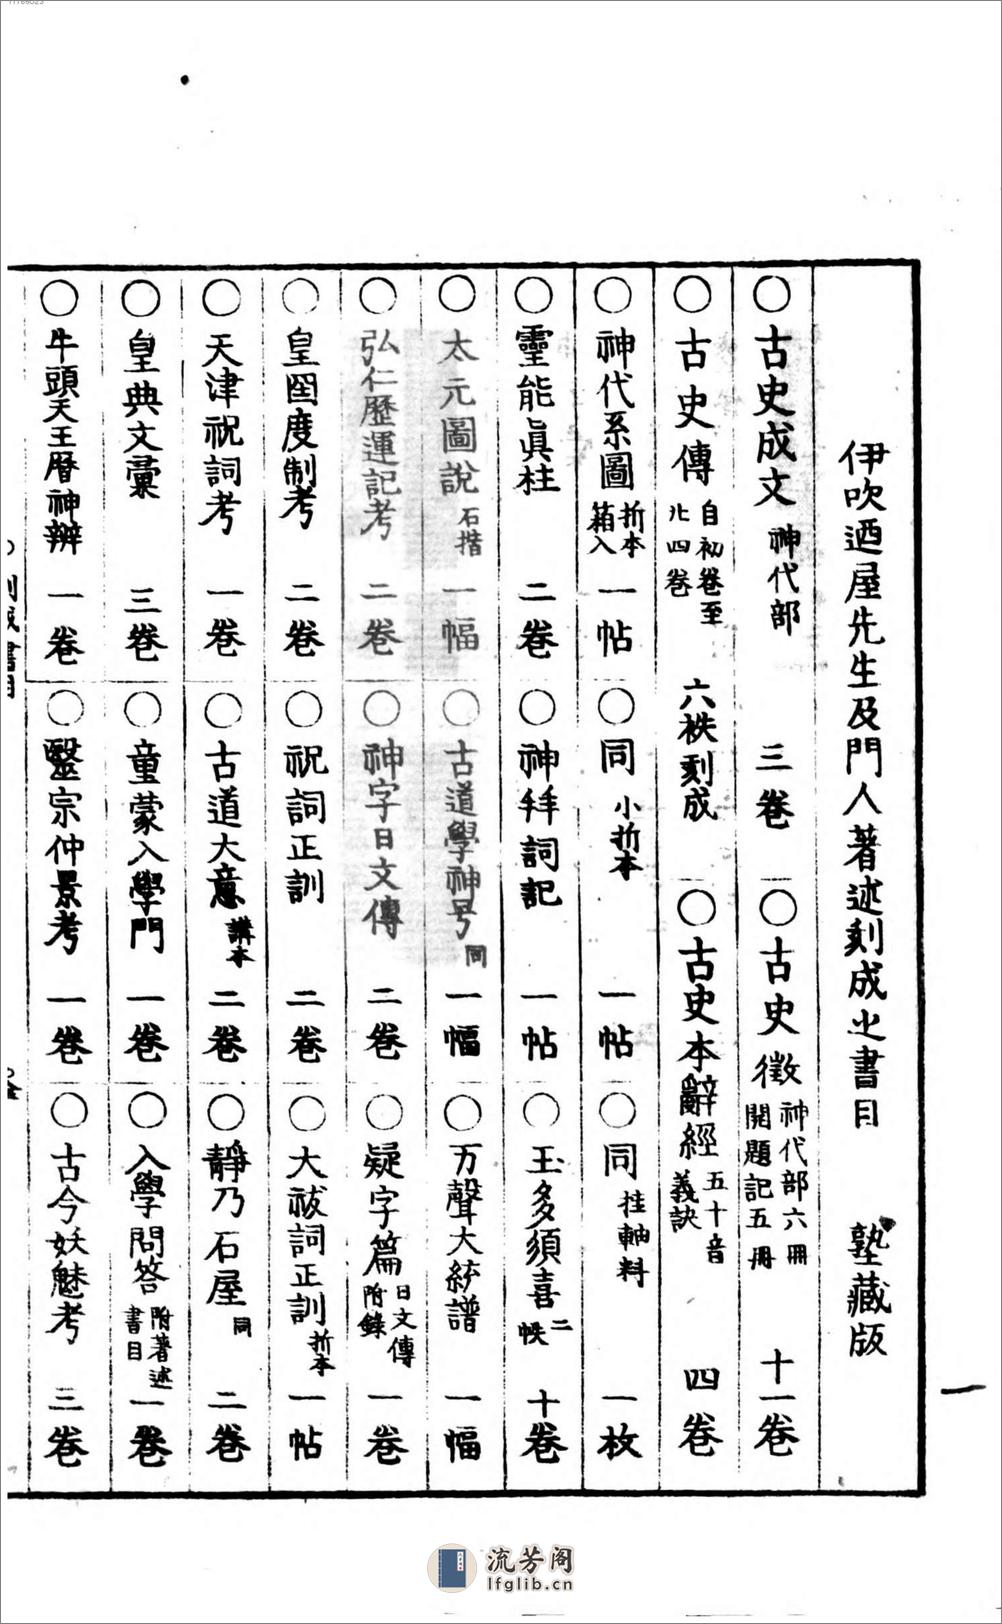 伊吹迺屋先生及門人著述刻成之書目 塾藏版
一
○古史成文 神代部 三卷 ○古史徵 神代部六冊 開題記五冊 十一卷
○古史傳 自初卷至廿四卷 六帙刻成 ○古史本辭經 五十音義訣 四卷
○神代系圖 折本箱入 一帖 ○同 小折本 一帖 ○同 挂軸料 一枚
○靈能眞柱 二卷 ○神拜詞記 一帖 ○玉多須喜 二帙 十卷
○太元圖說 石摺 一幅 ○古道學神号 同 一幅 ○万聲大統譜 一幅
○弘仁歷運記考 二卷 ○神字日文傳 二卷 ○疑字篇 日文傳附錄 一卷
○皇國度制考 二卷 ○祝詞正訓 二卷 ○大祓詞正訓 折本 一帖
○天津祝詞考 一卷 ○古道大意 講本 二卷 ○靜乃石屋 同 二卷
○皇典文彙 三卷 ○童蒙入學門 一卷 ○入學問答 附著述書目 一卷
○牛頭天王曆神辨 一卷 ○毉宗仲景考 一卷 ○古今妖魅考 三卷
流芳阁
lfglib.cn